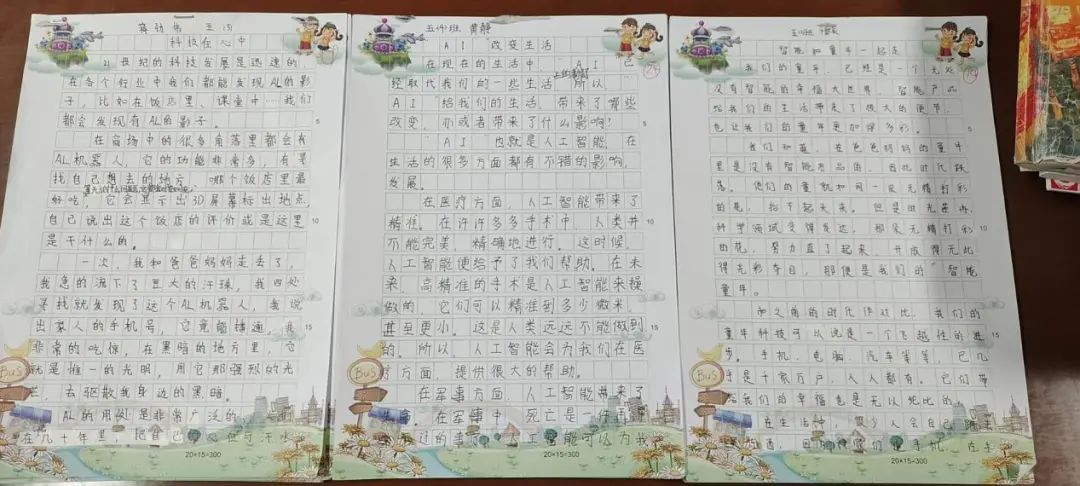 科技在心中
21世纪的科技发展是迅速的,
在各个行业中我们都能发现AL的影
子,比如在饭店里、课堂中……我们
都会发现有AL的影子。
在商场中的很多角落里都会有
AL机器人,它的功能非常多,有寻
找自己想去的地方,哪个饭店里最
好吃,它会显示出3D屏幕标出地点,
自己说出这个饭店的评价或是这里
是干什么的。
一次,我和爸爸妈妈走丢了,
我急的流下了豆大的汗珠,我四处
寻找就发现了这个AL机器人,我说
出家人的手机号,它竟能接通,我
非常的吃惊,在黑暗的地方里,它
就是惟一的光明,用它那强烈的光
芒,去驱散我身边的黑暗。
AL的用处是非常广泛的
在几十年里,把自己
20×15=300
五(4)班 黄静
AI改变生活
在现在的生活中,AI已
经取代我们的一些生活 所以,
AI给我们的生活,带来了哪些
改变,亦或者带来了什么影响?
AI,也就是人工智能,在
生活的很多方面都有不错的影响,
发展。
在医疗方面,人工智能带来了
精准。在许许多多手术中,人类并
不能完美,精确地进行。这时候,
人工智能便给予了我们帮助。在未
来,高精准的手术是人工智能来操
做的,它们可以精准到多少微米,
甚至更小。这是人类远远不能做到
的。所以,人工智能会为我们在医
疗方面,提供很大的帮助。
在军事方面,人工智能带来了
生命。在军事中,死亡是一件再
过的事了,人工智能可以为我
20×15=300
五(4)班
智能和童年一起走
我们的童年,已经是一个无处
没有智能的幸福大世界,智能产品
给我们的生活带来了极大的便节,
也让我们的童年更加绰多彩。
我们知道,在爸爸妈妈的童年
里是没有智能产品的,因此时代跌
落。他们的童年就如同一朵无精打彩
的花,抬不起头来。但是时光荏冉,
科学领域变得发达,那朵无精打彩
的花,努力直了起来,并成得无比
得光彩夺目,那便是我们的"智能
童年。
和父角的时代作对比,我们的
童年科技可以说是一个飞越性的进
步。手机、电脑、汽车等等,已几
乎是千家万户,人人都有。它们带
给我们的幸福也是无以伦比的。
在生活种,很少人会自己
20×15=300